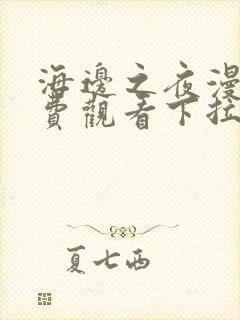 海邊之夜漫
費觀看下拉
夏七西